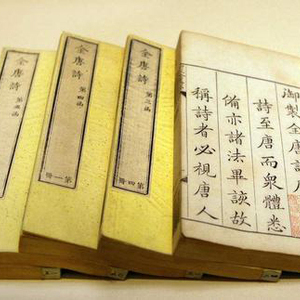 御製全唐詩
詩至唐而衆體悉
備亦諸法畢該故
稱詩者必視唐人
全唐詩
第三函
第四冊
全唐詩
第四函
第一冊
全唐詩
第五函